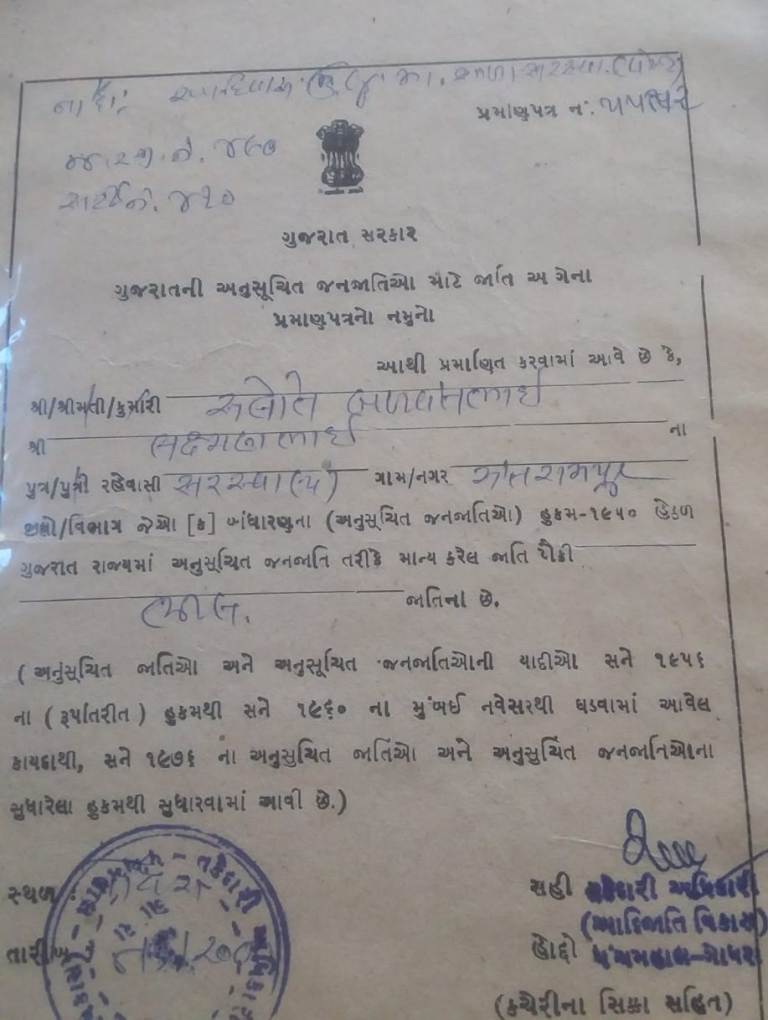 પ્રમાણપત્ર નં.
જા.ર.જી.નં. ૪૯૦
ગુજરાત સરકાર
ગુજરાતની અનુસૂચિત જનજાતિઓ માટે જાતિ અ ગેના
પ્રમાણપત્રનો નમુનો
આથી પ્રમાણિત કરવામાં આવે છે કે,
શ્રી/શ્રીમતી/કુમારી બળવંતભાઈ
શ્રી લક્ષ્મણભાઈ ના
પુત્ર/પુત્રી રહેવાસી સરસ્વા ગામ/નગર
જીલ્લો/વિભાગ જેઓ [ક] બંધારણના (અનુસૂચિત જનજાતિઓ) હુકમ-૧૯૫૦ હેઠળ
ગુજરાત રાજ્યમાં અનુસૂચિત જનજાતિ તરીકે માન્ય કરેલ જાતિ પૈકી
ભીલ. જાતિના છે.
(અનુસૂચિત જાતિઓ અને અનુસૂચિત જનજાતિઓની યાદીઓ સને ૧૯૫૬
ના (રૂપાંતરીત) હુકમથી સને ૧૯૬૦ ના મુંબઈ નવેસરથી ઘડવામાં આવેલ
કાયદાથી, સને ૧૯૭૬ ના અનુસુચિત જાતિઓ અને અનુસુચિત જનજાતિઓના
સુધારેલા હુકમથી સુધારવામાં આવી છે.)
સ્થળ :
સહી તકેદારી અધિકારી
(આદિજાતિ વિકાસ)
તારીખ
હોદ્દો પંચમહાલ-ગોધરા
(કચેરીના સિક્કા સહિત)